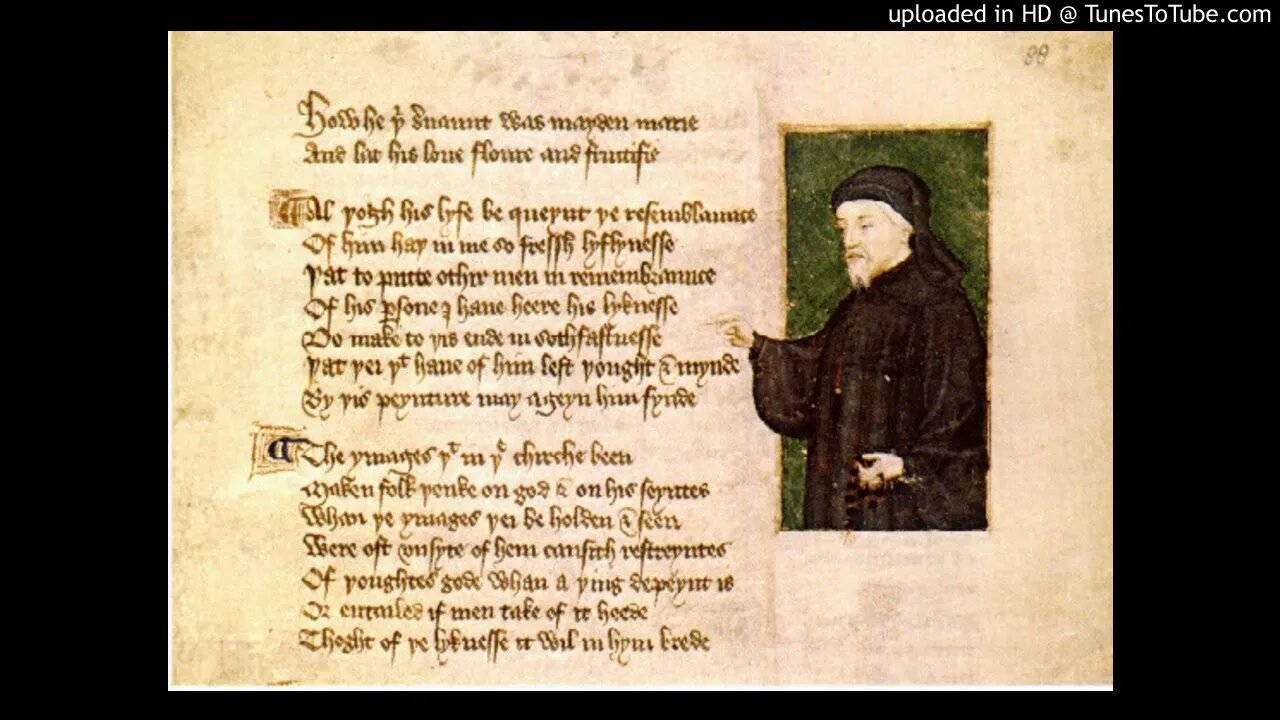 uploaded in HD @ TunesToTube.com
88
How he yͬ seruaunt was mayden marie
And lat his loue floure and fructifie
Al yogh his lyfe be queynt ye resemblaunce
Of him hay in me so fressh lyflynesse
Yat to putte othir men in remembraunce
Of his persone I haue heere his lyknesse
Do make to yis ende in sothfastnesse
Yat yei yͭ haue of him left yought & mynde
By yis peynture may ageyn him fynde
The ymages yͭ in yͤ chirche been
Maken folk yenke on god & on his seyntes
Whan ye ymages yei be holden & seen
Were oft vnsyte of hem causith restreyntes
Of youghtes gode whan a ying depeynt is
Or entailed if men take of it heede
Thoght of ye lyknesse it wil in hym brede